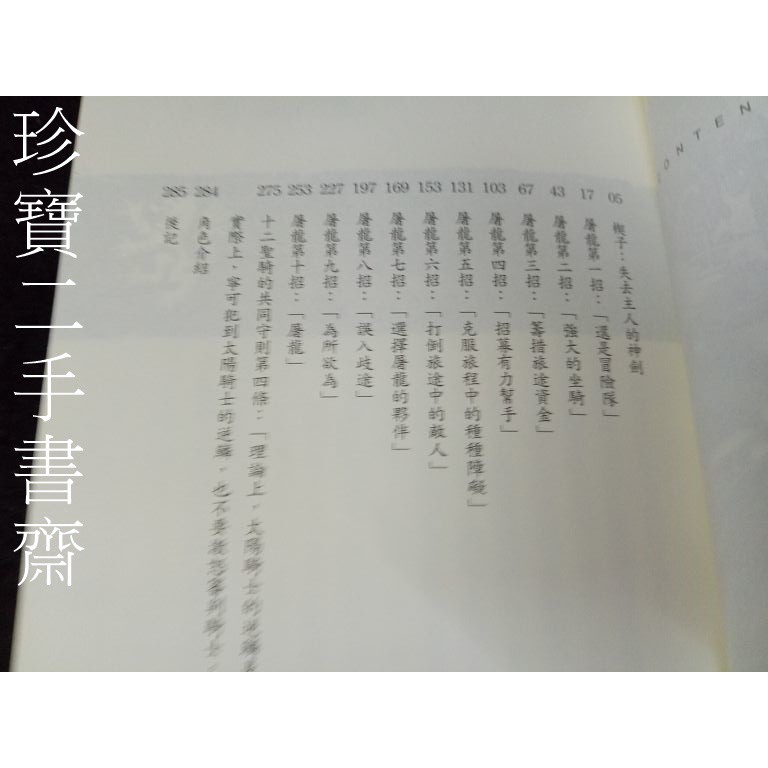 珍寶二手書齋
CONTEN
05 楔子：失去主人的神劍
17 屠龍第一招：「還是冒險隊」
43 屠龍第二招：「強大的坐騎」
67 屠龍第三招：「籌措旅途資金」
103 屠龍第四招：「招募有力幫手」
131 屠龍第五招：「克服旅程中的種種障礙」
153 屠龍第六招：「打倒旅途中的敵人」
169 屠龍第七招：「選擇屠龍的夥伴」
197 屠龍第八招：「誤入歧途」
227 屠龍第九招：「為所欲為」
253 屠龍第十招：「屠龍」
275 十二聖騎的共同守則第四條：「理論上，太陽騎士的逆鱗
實際上，寧可犯到太陽騎士的逆鱗，也不要
284 角色介紹
285 後記